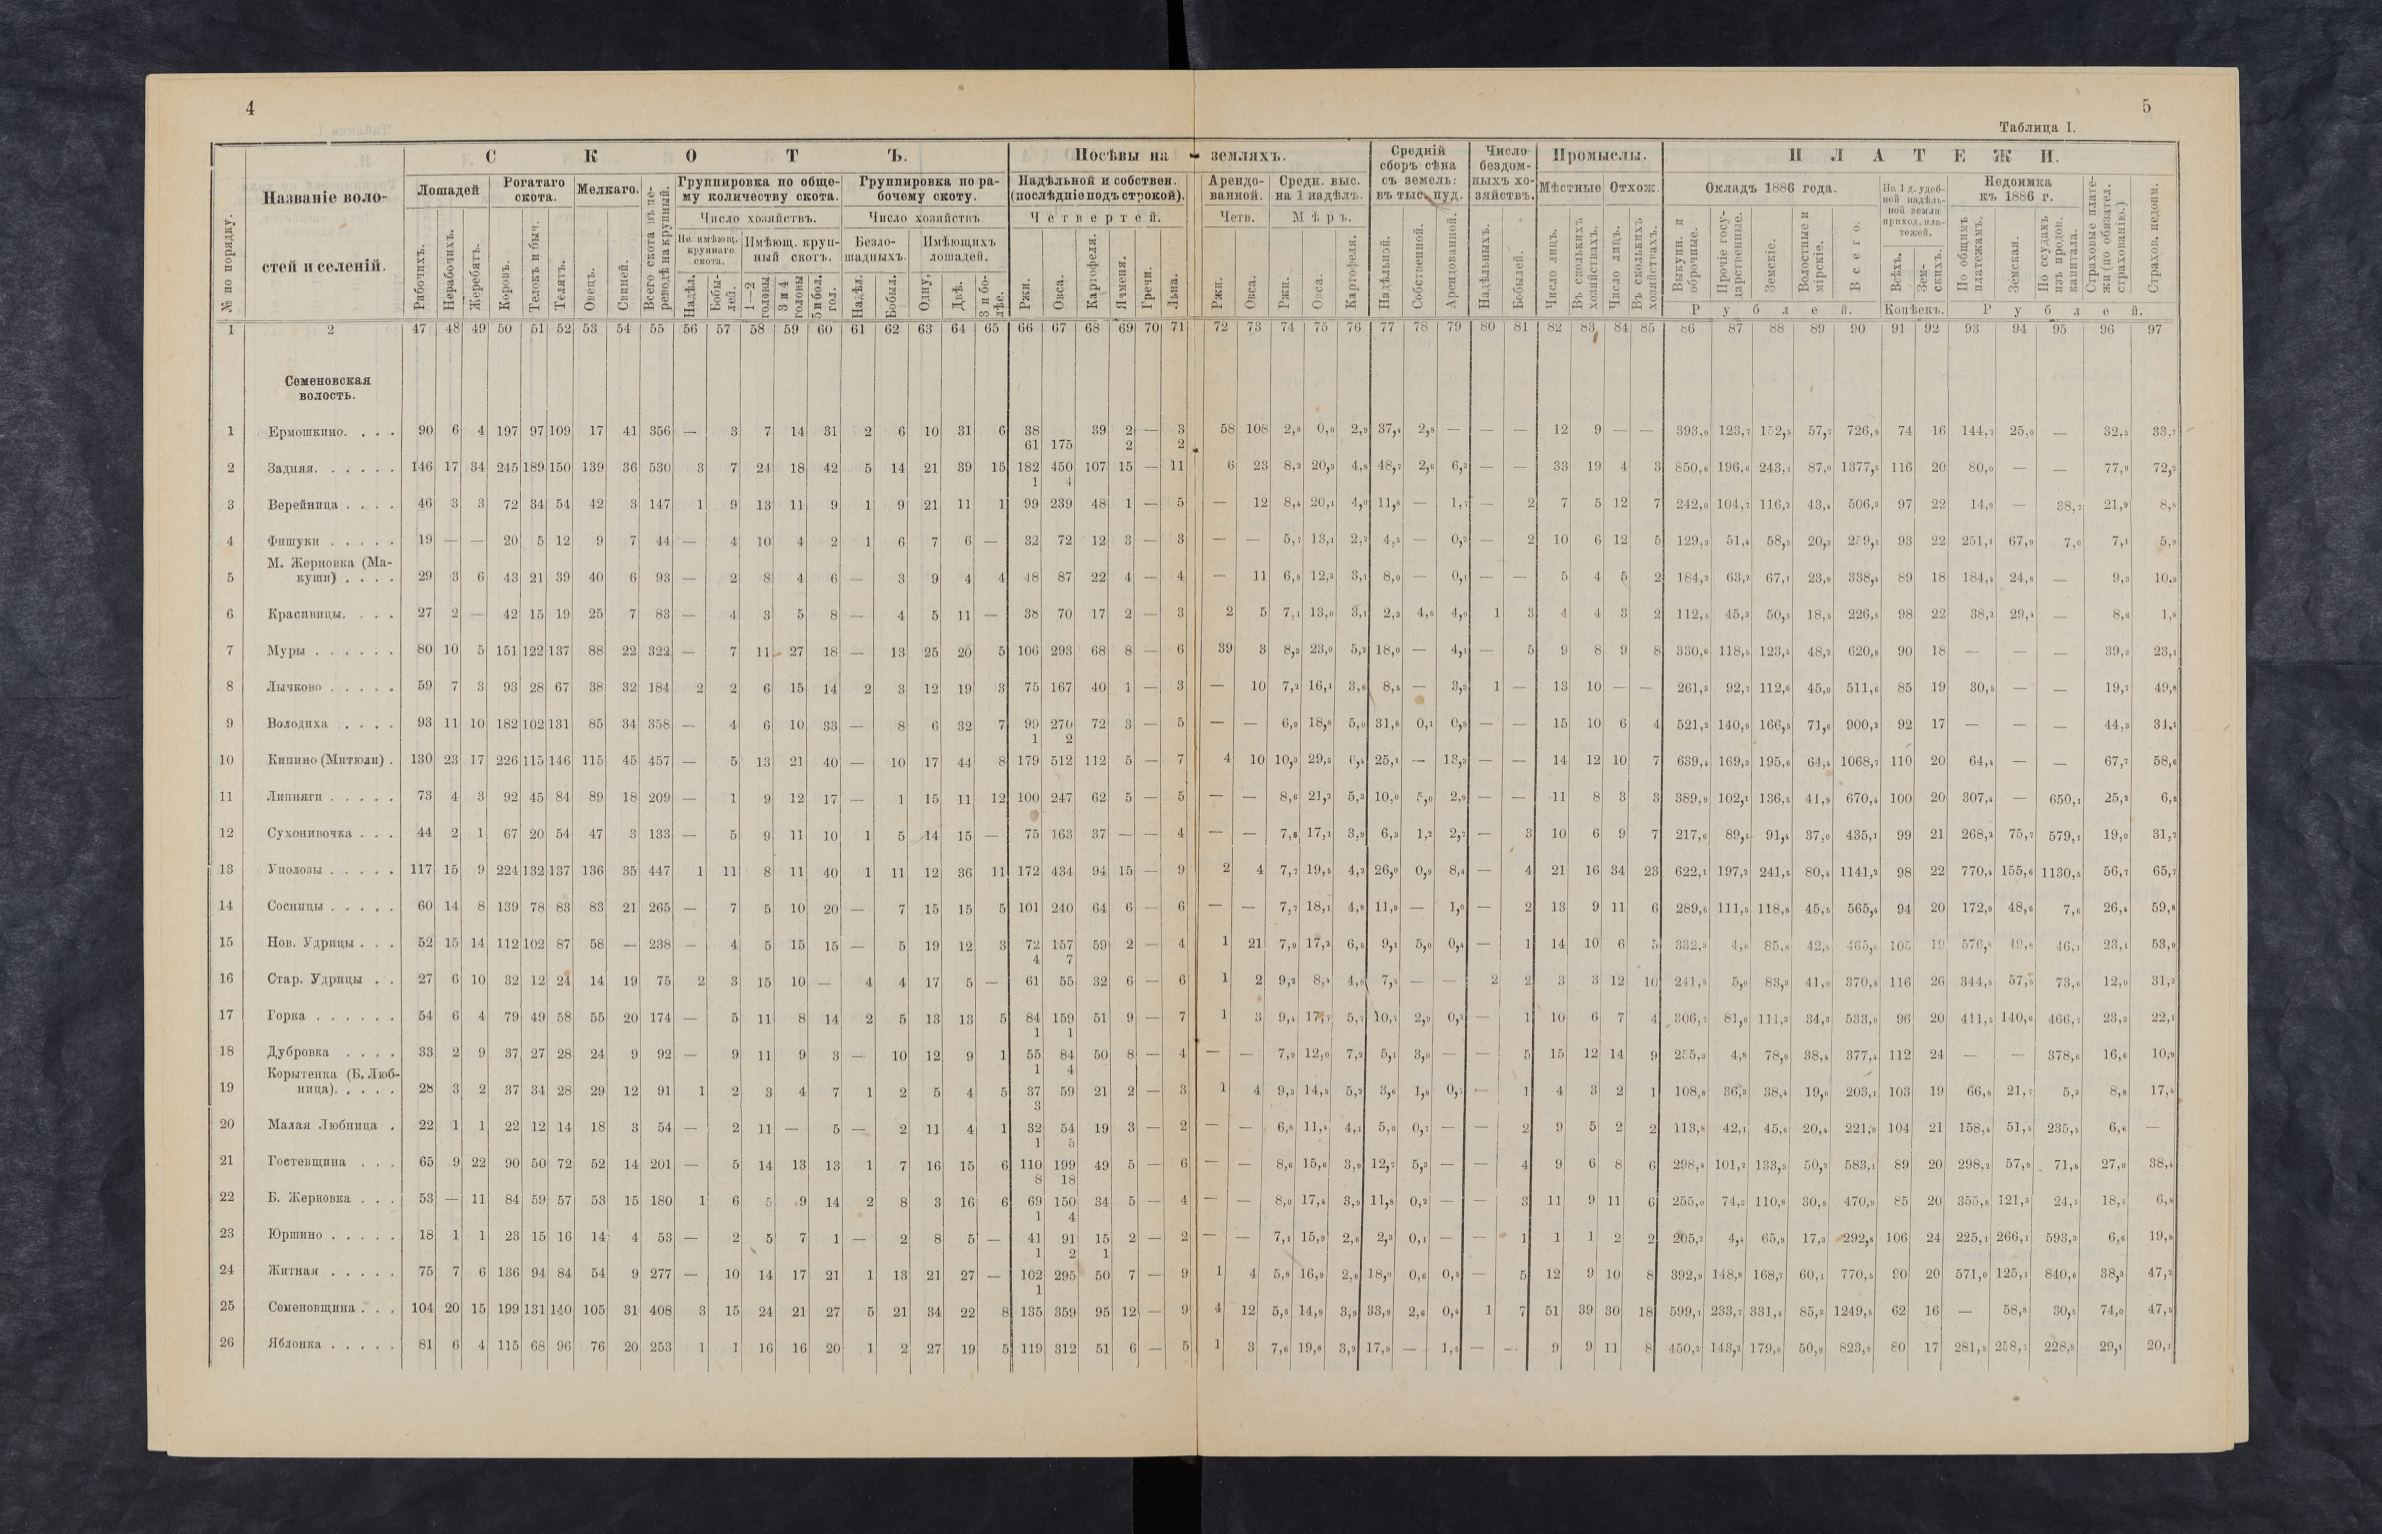 4
5
Таблица I.
№ по порядку.
Названіе волостей и селеній.
СКОТЪ.
Посѣвы на земляхъ.
Средній сборъ сѣна съ земель: въ тыс. пуд.
Число бездомныхъ хозяйствъ.
Промыслы.
ПЛАТЕЖИ.
Лошадей
Рогатаго скота.
Мелкаго.
Всего скота въ переводѣ на крупный.
Группировка по общему количеству скота.
Группировка по рабочему скоту.
Надѣльной и собствен. (послѣдніе подъ строкой).
Арендованной.
Средн. выс. на 1 надѣлъ.
Мѣстные
Отхож.
Окладъ 1886 года.
На 1 д. удобной надѣльной земли приход. платежей.
Недоимка къ 1886 г.
Страховые платежи (по обязател. страхованію.)
Страхов. недоим.
Число хозяйствъ.
Число хозяйствъ
Четвертей.
Четв.
Мѣръ.
Не имѣющ. крупнаго скота.
Имѣющ. крупный скотъ.
Безлошадныхъ.
Имѣющихъ лошадей.
Рабочихъ. Нерабочихъ. Жеребятъ. Коровъ. Телокъ и быч. Телятъ. Овецъ. Свиней.
Надѣл. Бобылей. 1—2 головы 3 и 4 головы 5 и бол. гол. Надѣл. Бобыл. Одну, Двѣ. 3 и болѣе.
Ржи. Овса. Картофеля. Ячменя. Гречи. Льна.
Ржи. Овса. Ржи. Овса. Картофеля. Надѣльной. Собственной. Арендованной. Надѣльныхъ. Бобылей.
Число лицъ. Въ сколькихъ хозяйствахъ. Число лицъ. Въ сколькихъ хозяйствахъ.
Выкупн. и оброчные. Прочіе государственные. Земскіе. Волостные и мірскіе. Всего. Всѣхъ. Земскихъ. По общимъ платежамъ. Земская. По ссудамъ изъ продов. капитала.
Рублей. Копѣекъ. Рублей.
1 2 47 48 49 50 51 52 53 54 55 56 57 58 59 60 61 62 63 64 65 66 67 68 69 70 71 72 73 74 75 76 77 78 79 80 81 82 83 84 85 86 87 88 89 90 91 92 93 94 95 96 97
Семеновская
волость.
1 Ермошкино. . . . 90 6 4 197 97 109 17 41 356 — 3 7 14 31 2 6 10 31 6 38 39 2 — 3 58 108 2,8 0,0 2,9 37,4 2,8 — — — 12 9 — — 393,0 123,7 152,5 57,7 726,9 74 16 144,7 25,0 — 32,5 33,7
61 175 2 2
2 Задняя. . . . . . 146 17 34 245 189 150 139 36 530 3 7 24 18 42 5 14 21 39 15 182 450 107 15 — 11 6 23 8,2 20,3 4,8 48,7 2,6 6,3 — — 33 19 4 3 850,8 196,6 243,1 87,0 1377,5 116 20 80,0 — — 77,9 72,2
1 4
3 Верейница . . . . 46 3 3 72 34 54 42 3 147 1 9 13 11 9 1 9 21 11 1 99 239 48 1 — 5 — 12 8,4 20,1 4,0 11,8 — 1,7 — 2 7 5 12 7 242,0 104,7 116,2 43,4 506,3 97 22 14,9 — 38,7 21,9 8,8
4 Фишуки . . . . . 19 — — 20 5 12 9 7 44 — 4 10 4 2 1 6 7 6 — 32 72 12 3 — 3 — — 5,7 13,1 2,2 4,5 — 0,2 — 2 10 6 12 5 129,3 51,4 58,5 20,3 259,5 93 22 251,1 67,9 7,0 7,1 5,9
М. Жерновка (Ма-
5 куши) . . . . 29 3 6 43 21 39 40 6 93 — 2 8 4 6 — 3 9 4 4 48 87 22 4 — 4 — 11 6,8 12,3 3,1 8,0 — 0,1 — — 5 4 5 2 184,2 63,2 67,1 23,9 338,4 89 18 184,4 24,8 — 9,3 10,9
6 Красивицы. . . . 27 2 — 42 15 19 25 7 83 — 4 3 5 8 — 4 5 11 — 38 70 17 2 — 3 2 5 7,1 13,0 3,1 2,3 4,8 4,0 1 3 4 4 3 2 112,5 45,3 50,5 18,5 226,8 98 22 38,2 29,4 — 8,6 1,8
7 Муры . . . . . . 80 10 5 151 122 137 88 22 322 — 7 11 27 18 — 13 25 20 5 106 293 68 8 — 6 39 3 8,3 23,0 5,2 18,0 — 4,1 — 5 9 8 9 8 330,6 118,5 123,5 48,2 620,8 90 18 — — — 39,3 23,1
8 Лычково . . . . . 59 7 3 93 28 67 38 32 184 2 2 6 15 14 2 3 12 19 3 75 167 40 1 — 3 — 10 7,2 16,1 3,8 8,5 — 3,3 1 — 13 10 — — 261,3 92,7 112,6 45,0 511,6 85 19 30,5 — — 19,7 49,8
9 Володиха . . . . 93 11 10 182 102 131 85 34 358 — 4 6 10 33 — 8 6 32 7 99 270 72 3 — 5 — — 6,9 18,8 5,0 31,8 0,1 0,8 — — 15 10 6 4 521,2 140,9 166,5 71,6 900,2 92 17 — — — 44,3 34,1
1 2
10 Кипино (Митюли) . 130 23 17 226 115 146 115 45 457 — 5 13 21 40 — 10 17 44 8 179 512 112 5 — 7 4 10 10,3 29,3 6,4 25,1 — 13,3 — — 14 12 10 7 639,4 169,3 195,6 64,4 1068,7 110 20 64,4 — — 67,7 58,6
11 Липняги . . . . . 73 4 3 92 45 84 89 18 209 — 1 9 12 17 — 1 15 11 12 100 247 62 5 — 5 — — 8,6 21,2 5,3 10,0 5,0 2,9 — — 11 8 3 3 389,9 102,1 136,5 41,9 670,4 100 20 307,4 — 650,1 25,2 6,5
12 Сухонивочка . . . 44 2 1 67 20 54 47 3 133 — 5 9 11 10 1 5 14 15 — 75 163 37 — — 4 — — 7,8 17,1 3,9 6,3 1,2 2,7 — 3 10 6 9 7 217,6 89,1 91,4 37,0 435,1 99 21 268,2 75,7 579,1 19,0 31,7
13 Уполозы . . . . . 117 15 9 224 132 137 136 35 447 1 11 8 11 40 1 11 12 36 11 172 434 94 15 — 9 2 4 7,7 19,5 4,2 26,0 0,9 8,4 — 4 21 16 34 23 622,1 197,2 241,5 80,4 1141,2 98 22 770,4 155,6 1130,5 56,7 65,7
14 Сосницы . . . . . 60 14 8 139 78 83 83 21 265 — 7 5 10 20 — 7 15 15 5 101 240 64 6 — 6 — — 7,7 18,1 4,8 11,9 — 1,0 — 2 13 9 11 6 289,6 111,5 118,8 45,5 565,4 94 20 172,9 48,6 7,6 26,4 59,8
15 Нов. Удрицы . . . 52 15 14 112 102 87 58 — 238 — 4 5 15 15 — 5 19 12 3 72 157 59 2 — 4 1 21 7,9 17,2 6,5 9,1 5,0 0,4 — 1 14 10 6 5 332,3 4,6 85,8 42,8 465,5 105 19 576,8 49,8 46,1 23,1 53,9
4 7
16 Стар. Удрицы . . 27 6 10 32 12 24 14 19 75 2 3 15 10 — 4 4 17 5 — 61 55 32 6 — 6 1 2 9,2 8,4 4,8 7,5 — — 2 2 3 3 12 10 241,5 5,0 83,3 41,0 370,8 116 26 344,5 57,5 73,6 12,0 31,2
17 Горка . . . . . . 54 6 4 79 49 58 55 20 174 — 5 11 8 14 2 5 13 13 5 84 159 51 9 — 7 1 3 9,4 17,7 5,7 10,7 2,9 0,2 — 1 10 6 7 4 306,7 81,6 111,3 34,3 533,9 96 20 411,5 140,6 466,7 23,3 22,1
1 1
18 Дубровка . . . . 33 2 9 37 27 28 24 9 92 — 9 11 9 3 — 10 12 9 1 55 84 50 8 — 4 — — 7,9 12,0 7,2 5,1 3,0 — — 5 15 12 14 9 255,3 4,8 78,9 38,4 377,4 112 24 — — 378,6 16,6 10,9
1 4
Корытенка (Б. Люб-
19 ница). . . . . 28 3 2 37 34 28 29 12 91 1 2 3 4 7 1 2 5 4 5 37 59 21 2 — 3 1 4 9,3 14,8 5,2 3,6 1,8 0,7 — 1 4 3 2 1 108,8 36,3 38,4 19,6 203,1 103 19 66,8 21,7 5,3 8,8 17,4
3
20 Малая Любница . 22 1 1 22 12 14 18 3 54 — 2 11 — 5 — 2 11 4 1 32 54 19 3 — 2 — — 6,8 11,4 4,1 5,0 0,7 — — 2 9 5 2 2 113,8 42,1 45,6 20,4 221,9 104 21 158,4 51,5 235,5 6,6 —
1 5
21 Гостевщина . . . 65 9 22 90 50 72 52 14 201 — 5 14 13 13 1 7 16 15 6 110 199 49 5 — 6 — — 8,6 15,6 3,9 12,7 5,3 — — 4 9 6 8 6 298,4 101,2 133,3 50,2 583,1 89 20 298,2 57,9 71,8 27,0 38,4
8 18
22 Б. Жерновка . . . 53 — 11 84 59 57 53 15 180 1 6 5 9 14 2 8 3 16 6 69 150 34 5 — 4 — — 8,0 17,4 3,9 11,8 0,2 — — 3 11 9 11 6 255,0 74,3 110,8 30,8 470,9 85 20 355,8 121,3 24,5 18,5 6,8
1 4
23 Юршино . . . . . 18 1 1 23 15 16 14 4 53 — 2 5 7 1 — 2 8 5 — 41 91 15 2 — 2 — — 7,1 15,9 2,6 2,3 0,1 — — 1 1 1 2 2 205,2 4,4 65,9 17,3 292,8 106 24 225,1 266,1 593,3 6,6 19,8
1 2 1
24 Житная . . . . . 75 7 6 136 94 84 54 9 277 — 10 14 17 21 1 13 21 27 — 102 295 50 7 — 9 1 4 5,8 16,9 2,9 18,0 0,6 0,5 — 5 12 9 10 8 392,9 148,8 168,7 60,1 770,5 90 20 571,0 125,1 840,6 38,3 47,2
1
25 Семеновщина . . . 104 20 15 199 131 140 105 31 408 3 15 24 21 27 5 21 34 22 8 135 359 95 12 — 9 4 12 5,5 14,9 3,9 33,9 2,6 0,4 1 7 51 39 30 18 599,1 233,7 331,4 85,3 1249,5 62 16 — 58,8 30,5 74,0 47,5
26 Яблонка . . . . . 81 6 4 115 68 96 76 20 253 1 1 16 16 20 1 2 27 19 5 119 312 51 6 — 5 1 3 7,6 19,8 3,2 17,9 — 1,5 — — 9 9 11 8 450,2 143,2 179,6 50,9 823,9 80 17 281,5 258,7 228,8 29,1 20,1